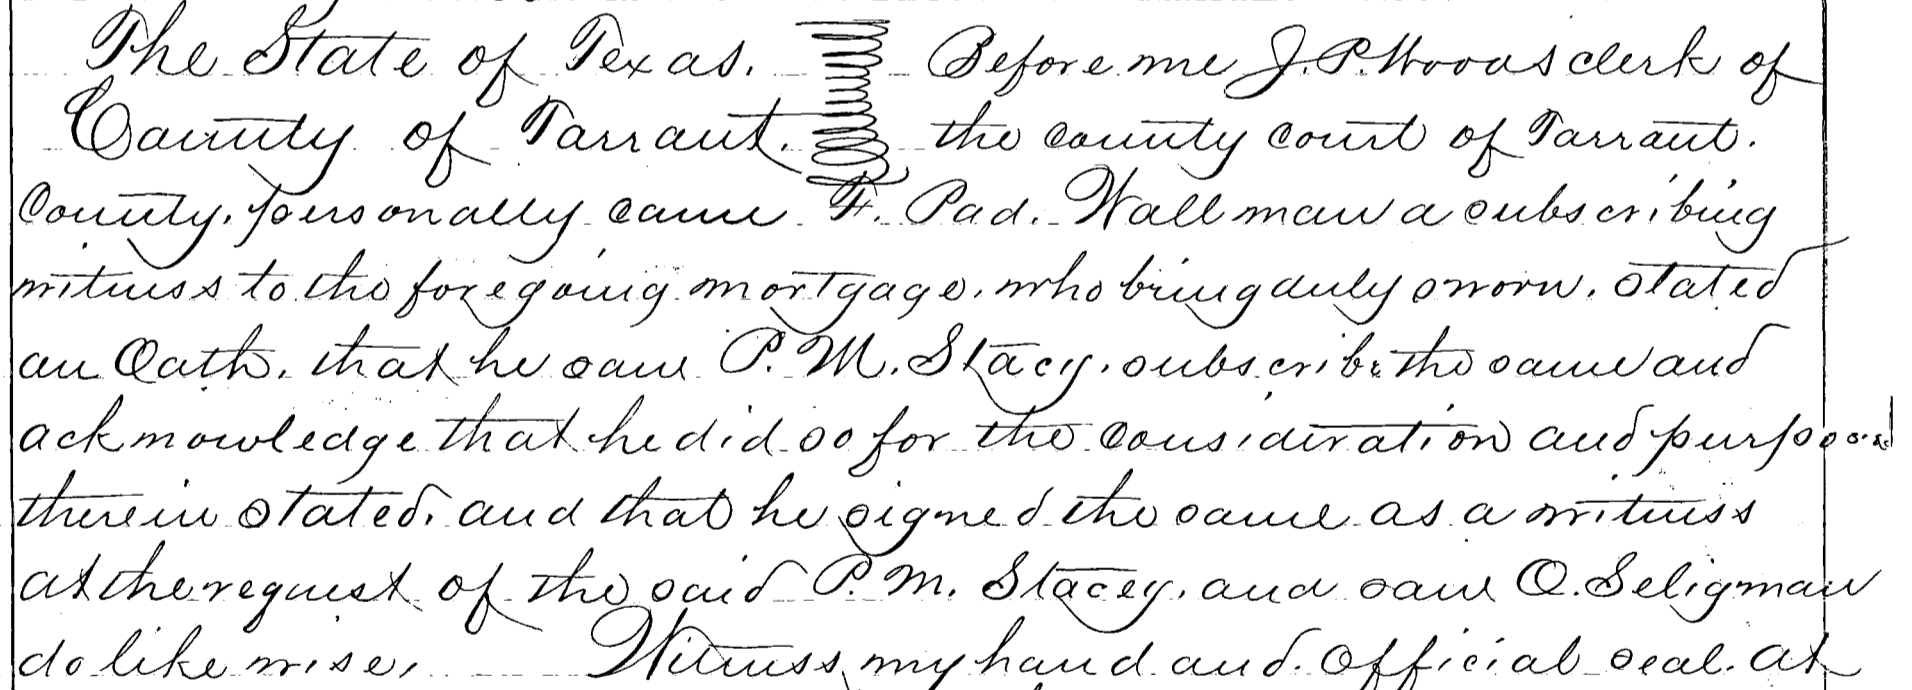 The State of Texas. Before me J. P. Woods clerk of
County of Tarrant. the county court of Tarrant.
County. personally came F. Pad. Wallman a subscribing
witness to the foregoing mortgage. who being duly sworn. stated
on Oath. that he saw P. M. Stacy. subscribe the same and
acknowledge that he did so for the consideration and purposes
therein stated. and that he signed the same as a witness
at the request of the said P. M. Stacey. and saw O. Seligman
do likewise. Witness my hand and. official seal. at